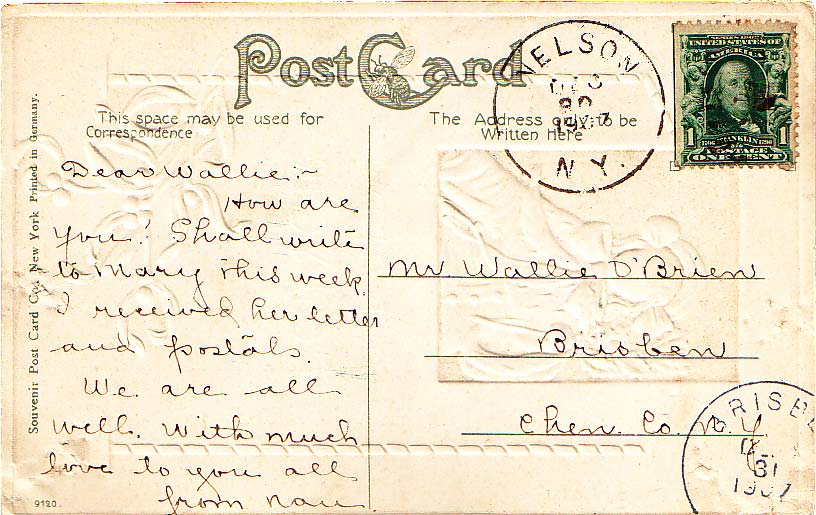 Post Card
This space may be used for
Correspondence
The Address only to be
Written Here
NELSON
DEC
30
1907
N.Y.
SERIES 1902
UNITED STATES OF
AMERICA
1 1
1706 FRANKLIN 1790
POSTAGE
ONE CENT
Souvenir Post Card Co., New York Printed in Germany.
Dear Wallie:~
How are
you? Shall write
to Mary this week.
I received her letter
and postals.
We are all
well. With much
love to you all
from nan
9120.
Mr Wallie O'Brien
Brisben
Chen. Co. N.Y.
BRISBE
31
1907